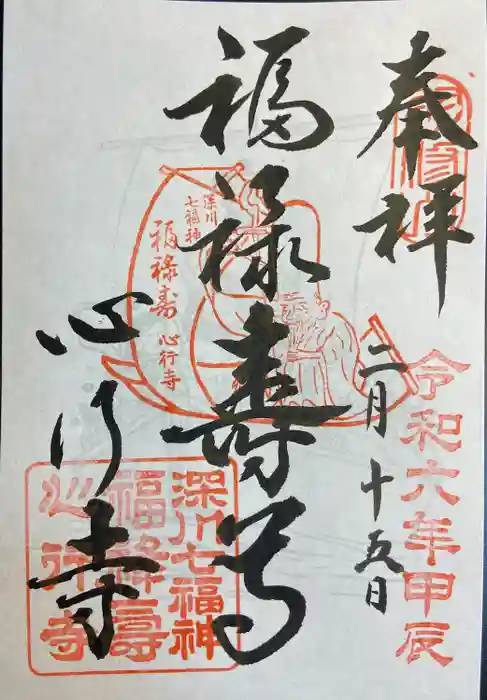 奉拝
令和六年甲辰
二月十五日
福禄寿尊
深川
七福神
福禄寿
心行寺
心行寺
深川七福神
福禄壽
心行寺